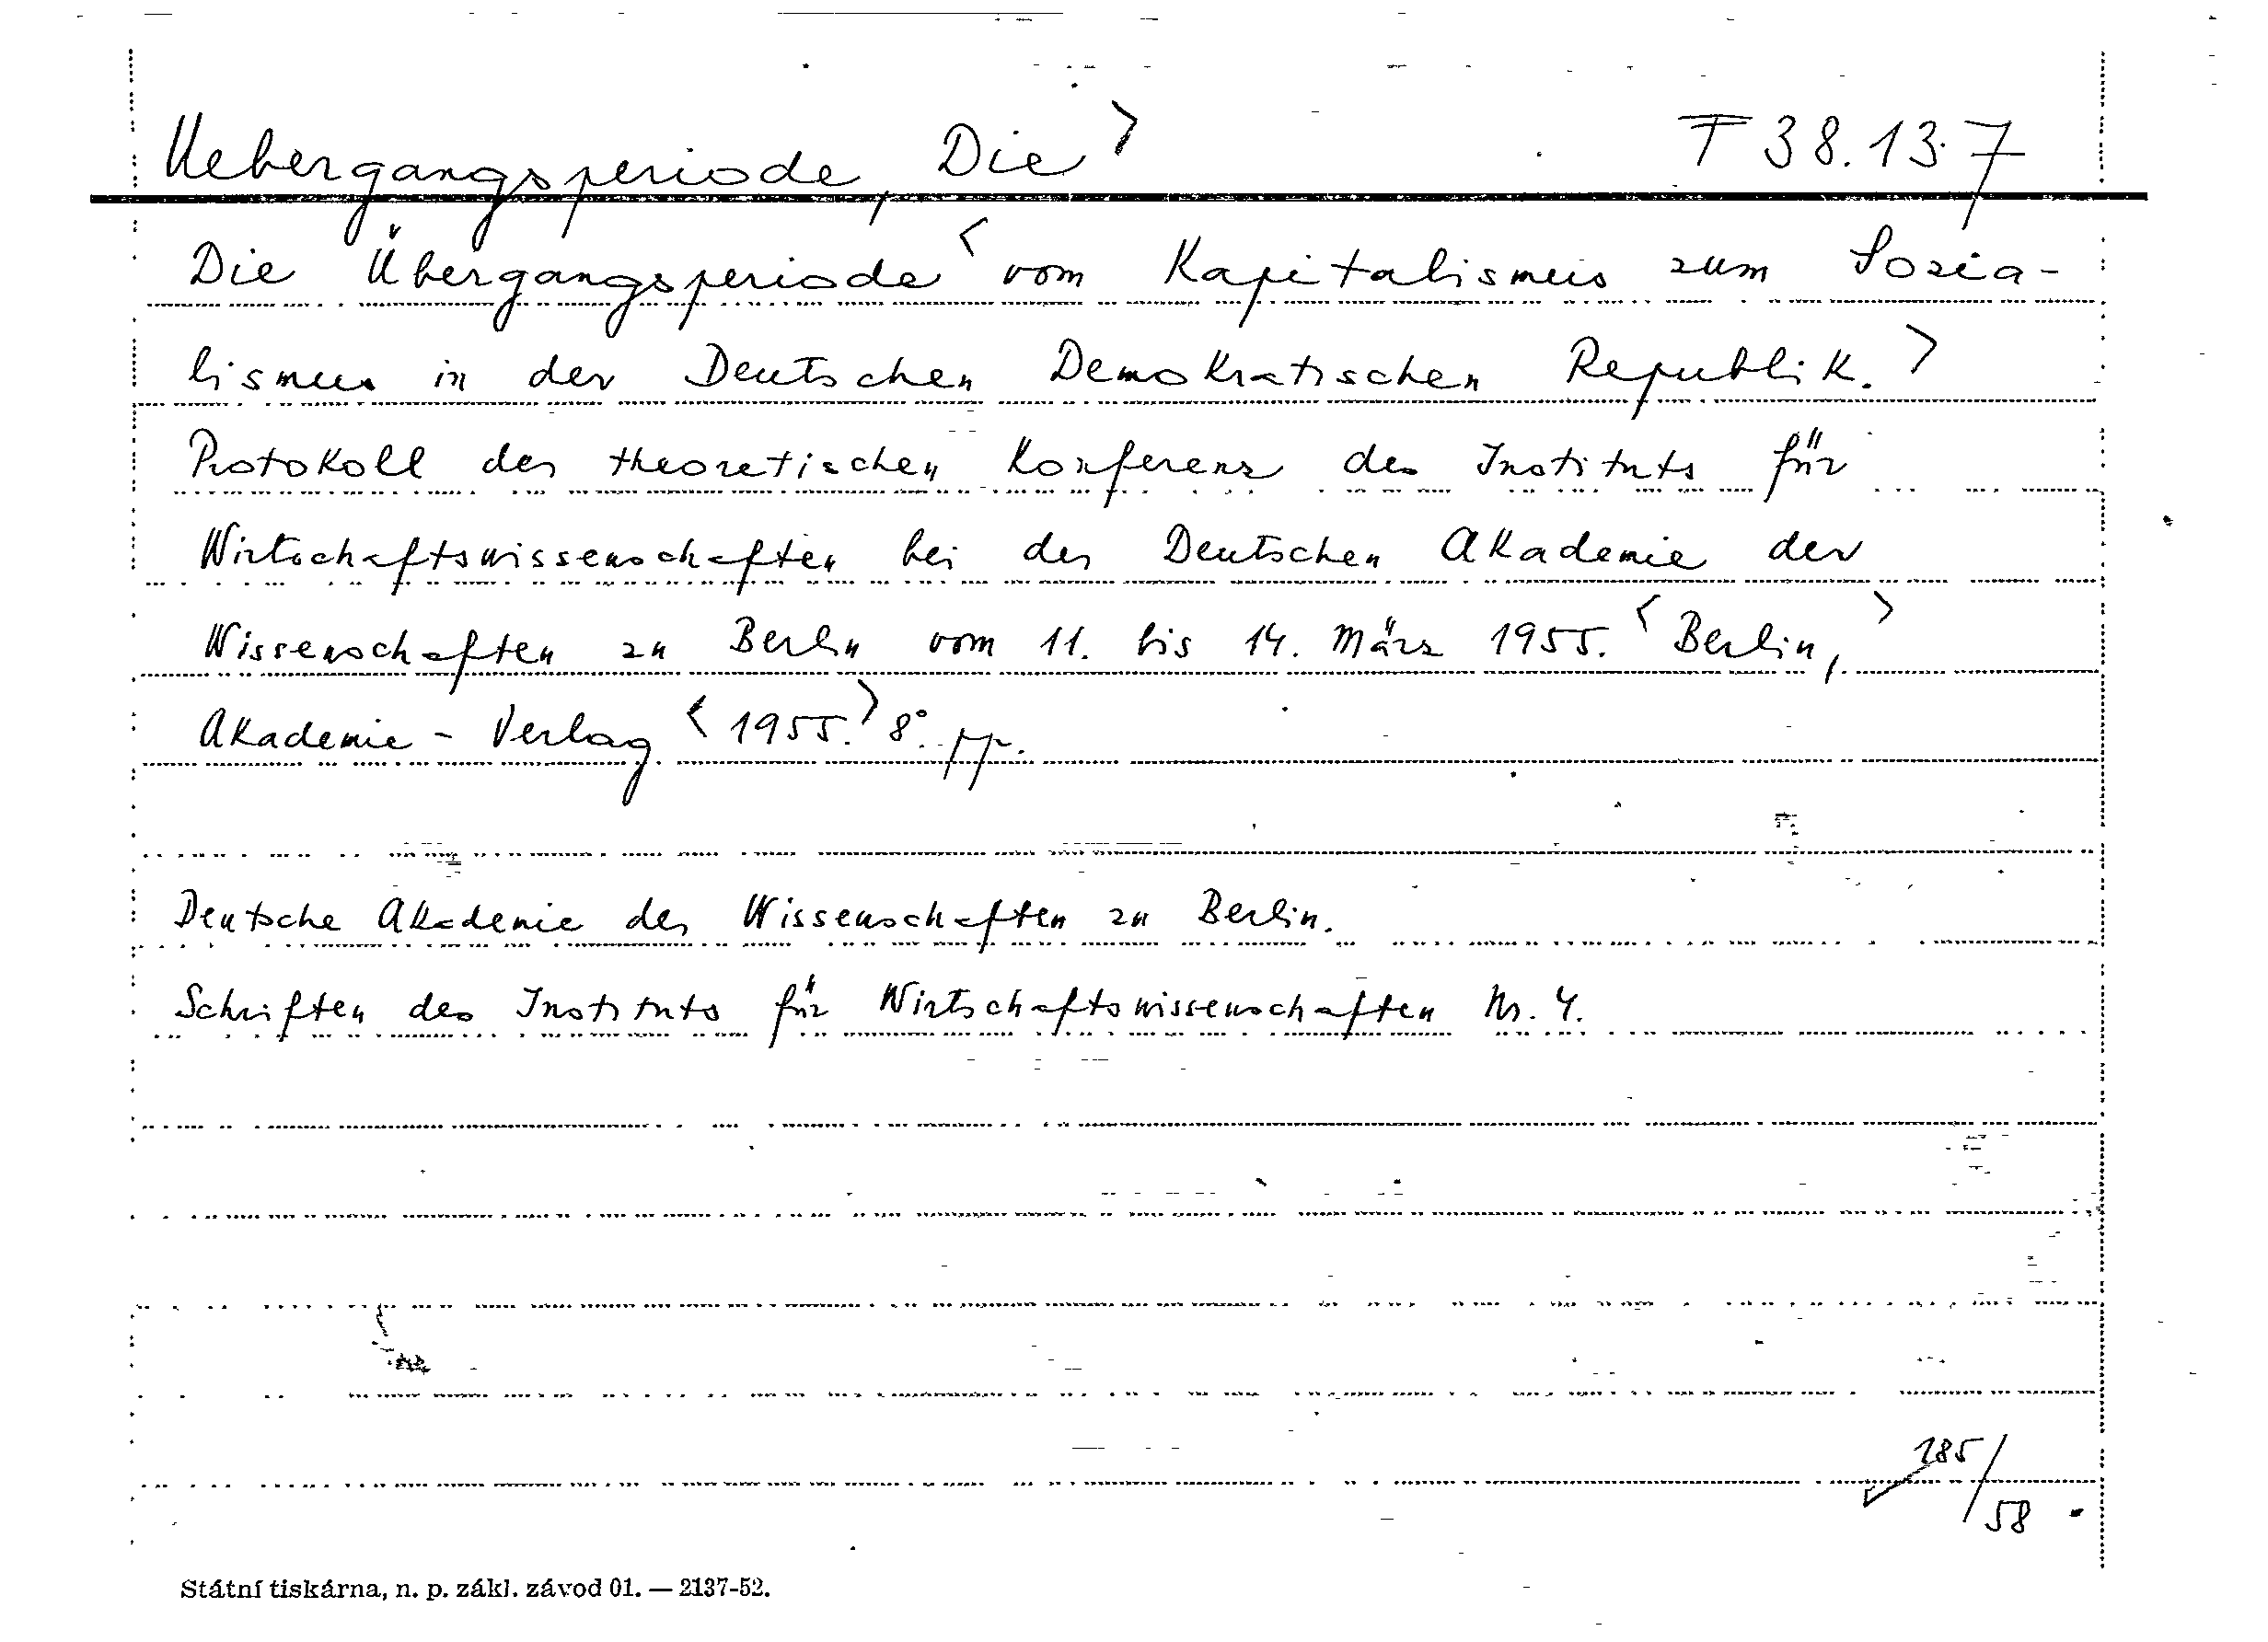 Uebergangsperiode, Die> F 38.137
Die Übergangsperiode< vom Kapitalismus zum Sozia-
lismus in der Deutschen Demokratischen Republik.>
Protokoll der theoretischen Konferenz des Instituts für
Wirtschaftswissenschaften bei der Deutschen Akademie der
Wissenschaften zu Berlin vom 11. bis 14. März 1955. <Berlin,>
Akademie-Verlag <1955.> 8°. pp.
Deutsche Akademie der Wissenschaften zu Berlin.
Schriften des Instituts für Wirtschaftswissenschaften Nr. 4.
185/58
Státní tiskárna, n. p. zákl. závod 01. — 2137-52.